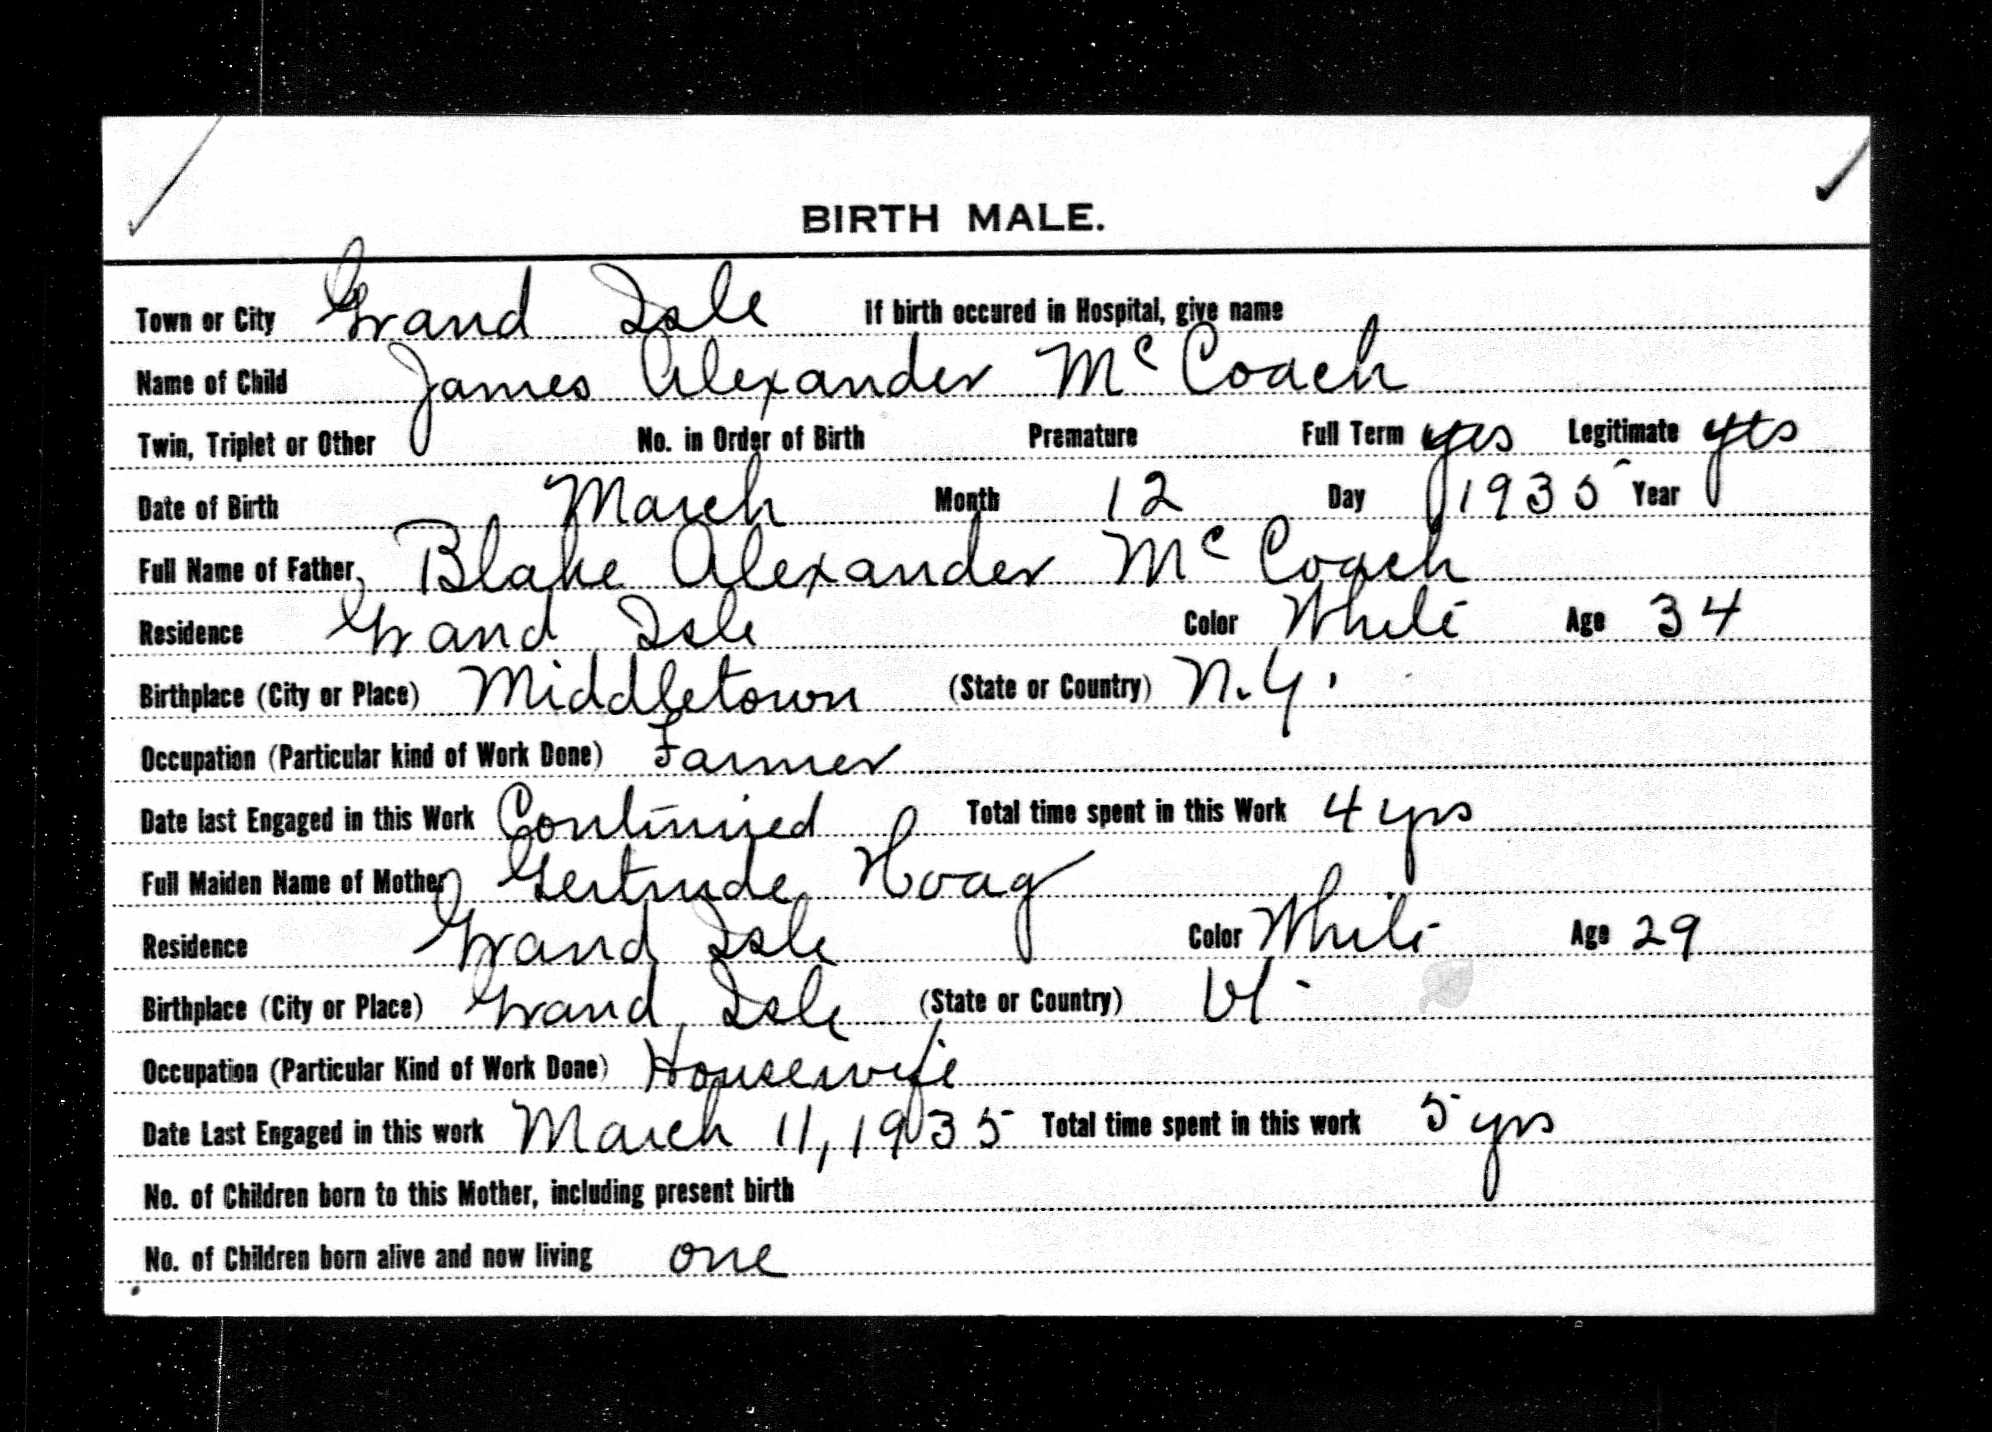 BIRTH MALE.
Town or City Grand Isle If birth occured in Hospital, give name
Name of Child James Alexander McCoach
Twin, Triplet or Other No. in Order of Birth Premature Full Term yes Legitimate yes
Date of Birth March Month 12 Day 1935 Year
Full Name of Father Blake Alexander McCoach
Residence Grand Isle Color White Age 34
Birthplace (City or Place) Middletown (State or Country) N.Y.
Occupation (Particular kind of Work Done) Farmer
Date last Engaged in this Work Continued Total time spent in this Work 4 yrs
Full Maiden Name of Mother Gertrude Hoag
Residence Grand Isle Color White Age 29
Birthplace (City or Place) Grand Isle (State or Country) Vt.
Occupation (Particular Kind of Work Done) Housewife
Date Last Engaged in this work March 11, 1935 Total time spent in this work 5 yrs
No. of Children born to this Mother, including present birth
No. of Children born alive and now living one